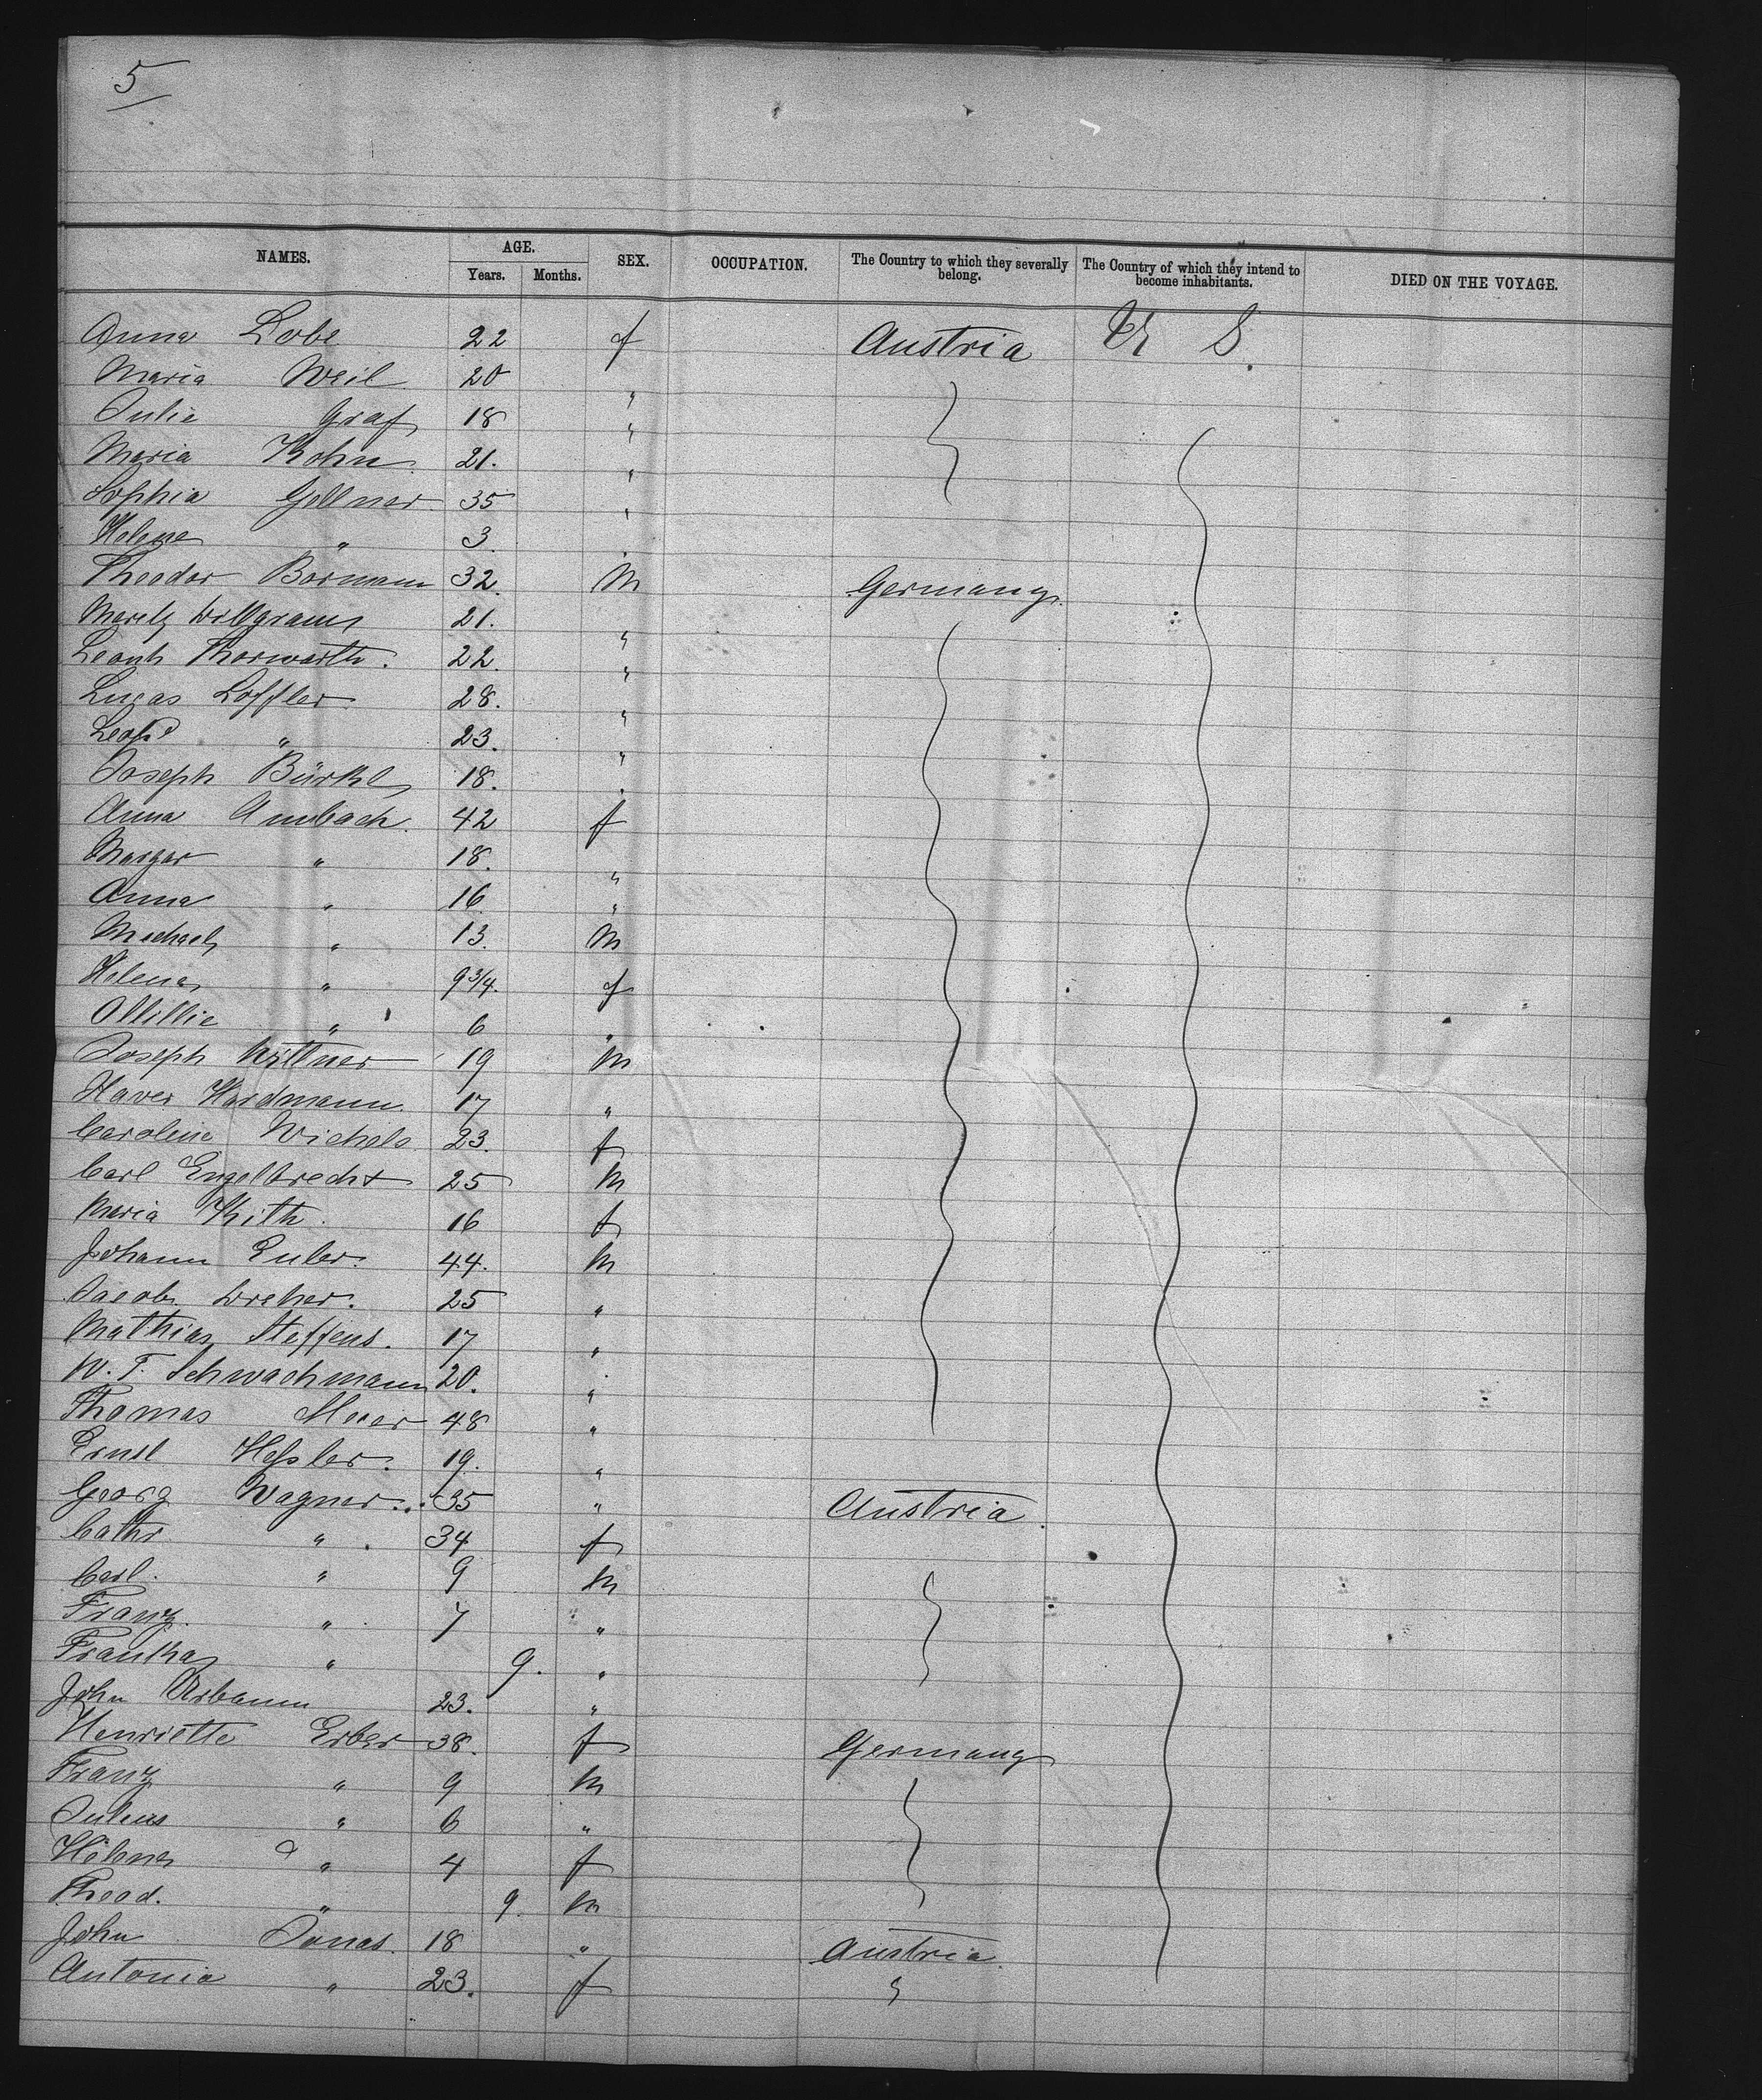 5
NAMES. AGE. Years. Months. SEX. OCCUPATION. The Country to which they severally belong. The Country of which they intend to become inhabitants. DIED ON THE VOYAGE.
Anna Lobe 22 f Austria U S.
Maria Weil 20 "
Julie Graf 18 "
Maria Kohn 21. "
Sophia Gellner 35 "
Helene " 3. "
Theodor Bormann 32. M Germany
21. "
Thorwarth. 22. "
Lucas Loffler 28. "
Leopd " 23. "
Joseph Bürkl 18. "
Anna Ambach. 42 f
Margar " 18. "
Anna " 16 "
Michael " 13. M
Helena " 9 3/4. f
Ottillie " 6 "
Joseph Wittner 19 M
Xaver Hardmann. 17 "
Caroline Wichels 23. f
Carl Engelbrecht 25 M
Maria Kith. 16 f
Johann Euler. 44. M
Jacob Dreher. 25 "
Mathias Steffens. 17 "
W. F. Schwachmann 20. "
Thomas Meier 48 "
Ernst Heßler. 19. "
Georg Wagner. 35 " Austria.
Cathr " 34 f
Carl. " 9 M
Franz. " 7 "
" 9. "
John Urbann 23. "
Henriette Erber 38. f Germany
Franz " 9 M
Julius " 6 "
Helena " 4 f
Theod. " 9. M
John Jonas. 18 " Austria.
Antonia " 23. f "